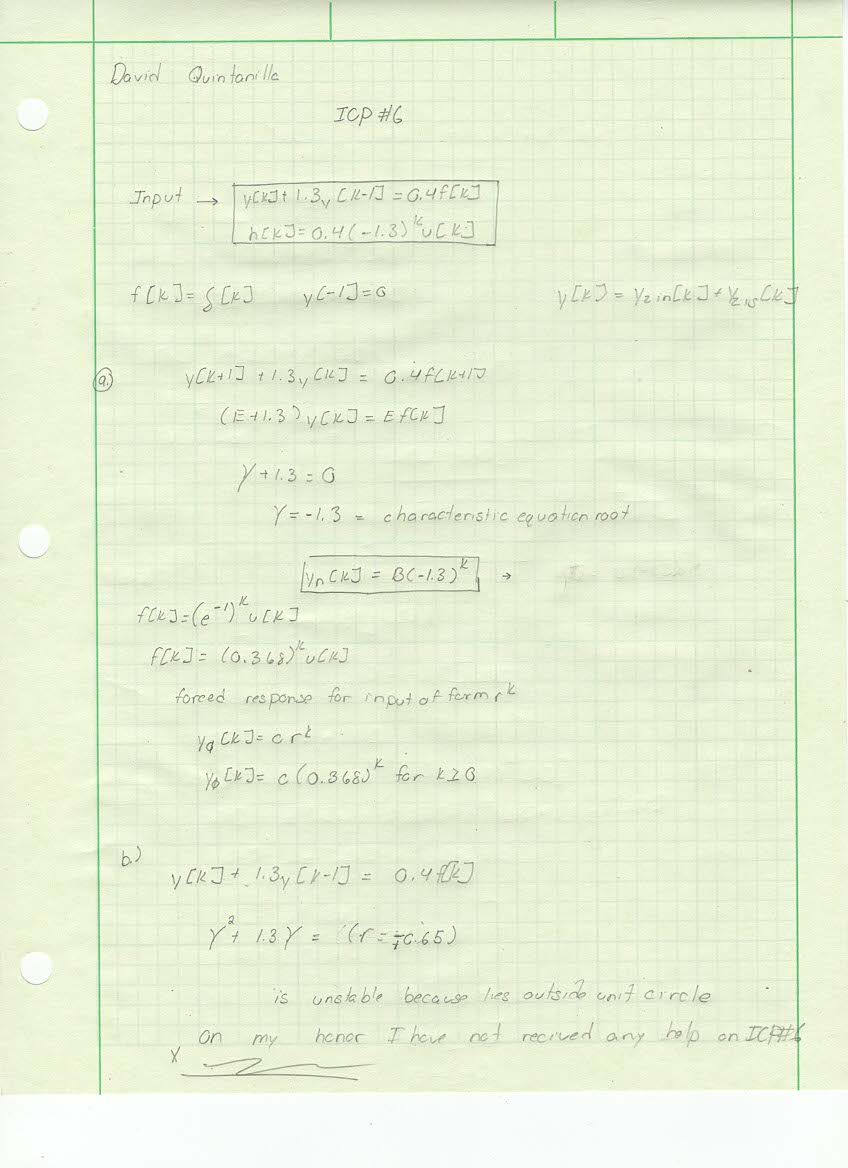 David Quintanilla
ICP #6
Input → y[k] + 1.3y[k-1] = 0.4f[k]
h[k] = 0.4(-1.3)^k u[k]
f[k] = δ[k] y[-1] = 0 y[k] = y_zin[k] + y_zis[k]
a.) y[k+1] + 1.3y[k] = 0.4f[k+1]
(E+1.3) y[k] = E f[k]
γ + 1.3 = 0
γ = -1.3 = characteristic equation root
y_n[k] = B(-1.3)^k →
f[k] = (e^-1)^k u[k]
f[k] = (0.368)^k u[k]
forced response for input of form r^k
y_φ[k] = c r^k
y_φ[k] = c(0.368)^k for k≥0
b.)
y[k] + 1.3y[k-1] = 0.4f[k]
γ^2 + 1.3γ = (r = ±0.65)
is unstable because lies outside unit circle
On my honor I have not recived any help on ICP#6
X